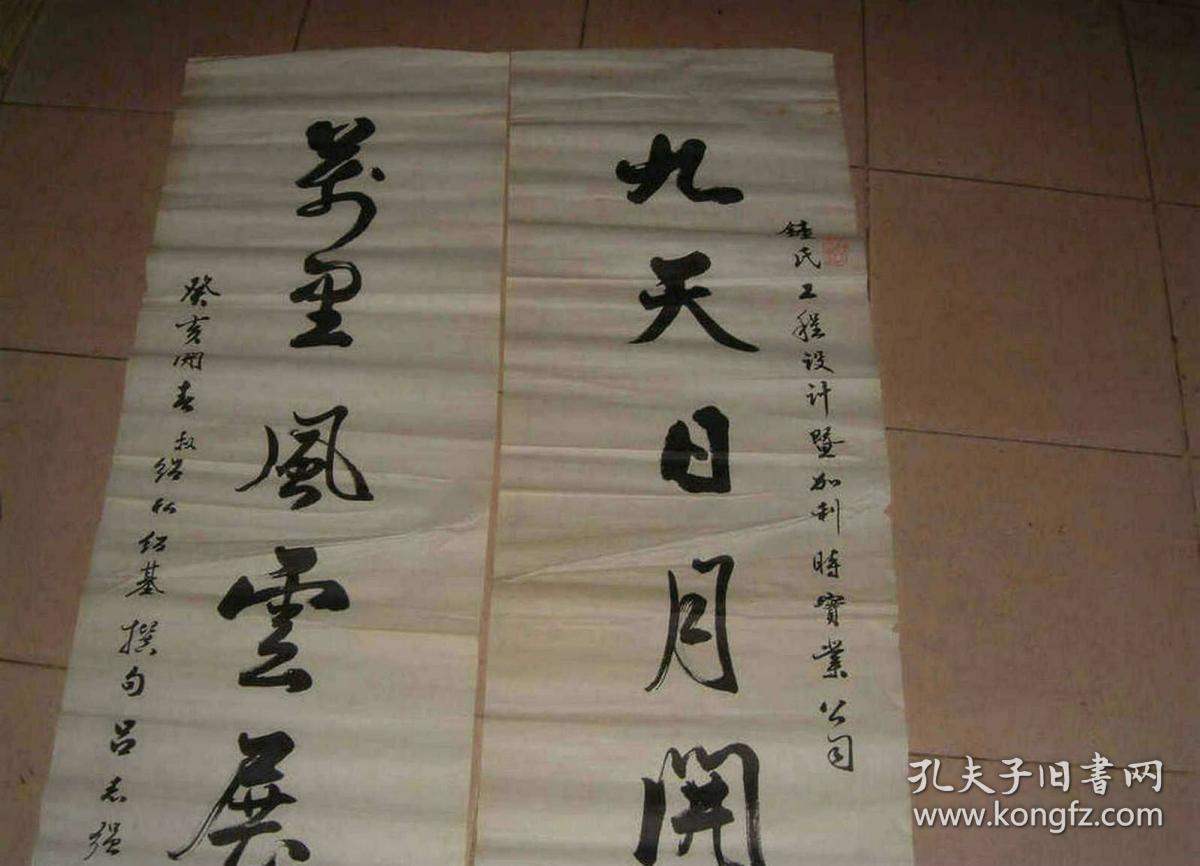 鍾氏工程设计暨加利時實業公司
九天日月開
萬里風雲展
癸亥開春叔紹 紹基撰句吕志强
孔夫子旧书网
www.kongfz.com